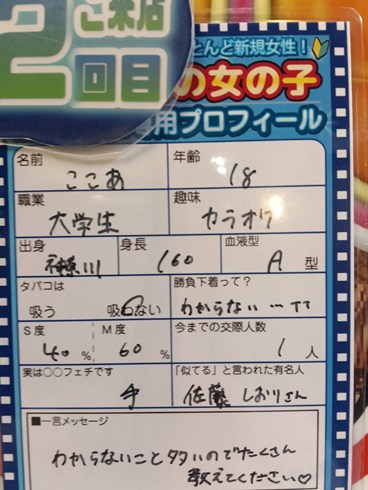 ご来店
2回目
とんど新規女性!
の女の子
用プロフィール
名前 ここあ
年齢 18
職業 大学生
趣味 カラオケ
出身 神奈川
身長 160
血液型 A型
タバコは 吸う 吸わない
勝負下着って? わからない…TT
S度 40%
M度 60%
今までの交際人数 1人
実は○○フェチです 手
「似てる」と言われた有名人 佐藤しおりさん
■一言メッセージ
わからないこと多いのでたくさん
教えてください♡